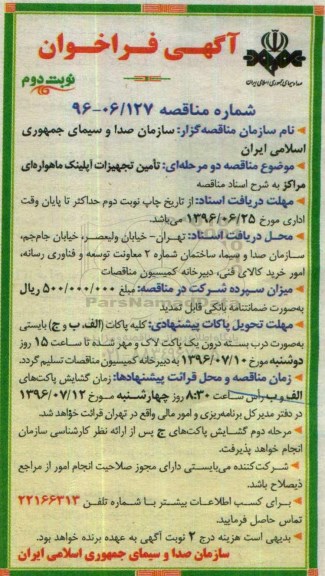 آگهی فراخوان
صدا و سیمای جمهوری اسلامی ایران
نوبت دوم
شماره مناقصه ۰۶/۱۲۷-۹۶
نام سازمان مناقصه‌گزار: سازمان صدا و سیمای جمهوری
اسلامی ایران
موضوع مناقصه دو مرحله‌ای: تأمین تجهیزات آپلینک ماهواره‌ای
مراکز به شرح اسناد مناقصه
مهلت دریافت اسناد: از تاریخ چاپ نوبت دوم حداکثر تا پایان وقت
اداری مورخ ۱۳۹۶/۰۶/۲۵ می‌باشد.
محل دریافت اسناد: تهران- خیابان ولیعصر، خیابان جام‌جم،
سازمان صدا و سیما، ساختمان شماره ۲ معاونت توسعه و فناوری رسانه،
امور خرید کالای فنی، دبیرخانه کمیسیون مناقصات
میزان سپرده شرکت در مناقصه: مبلغ ۵۰۰/۰۰۰/۰۰۰ ریال
به‌صورت ضمانتنامه بانکی قابل تمدید
مهلت تحویل پاکات پیشنهادی: کلیه پاکات (الف، ب و ج) بایستی
به‌صورت درب بسته درون یک پاکت لاک و مهر شده تا ساعت ۱۵ روز
دوشنبه مورخ ۱۳۹۶/۰۷/۱۰ به دبیرخانه کمیسیون مناقصات تسلیم گردد.
زمان مناقصه و محل قرائت پیشنهادها: زمان گشایش پاکت‌های
الف و ب راس ساعت ۸:۳۰ روز چهارشنبه مورخ ۱۳۹۶/۰۷/۱۲
در دفتر مدیرکل برنامه‌ریزی و امور مالی واقع در تهران قرائت خواهد شد.
مرحله دوم گشایش پاکت‌های ج پس از ارائه نظر کارشناسی سازمان
انجام خواهد پذیرفت.
شرکت‌کننده می‌بایستی دارای مجوز صلاحیت انجام امور از مراجع
ذیصلاح باشد.
برای کسب اطلاعات بیشتر با شماره تلفن ۲۲۱۶۶۳۱۳
تماس حاصل فرمایید.
بدیهی است هزینه درج ۲ نوبت آگهی به عهده برنده خواهد بود.
سازمان صدا و سیمای جمهوری اسلامی ایران